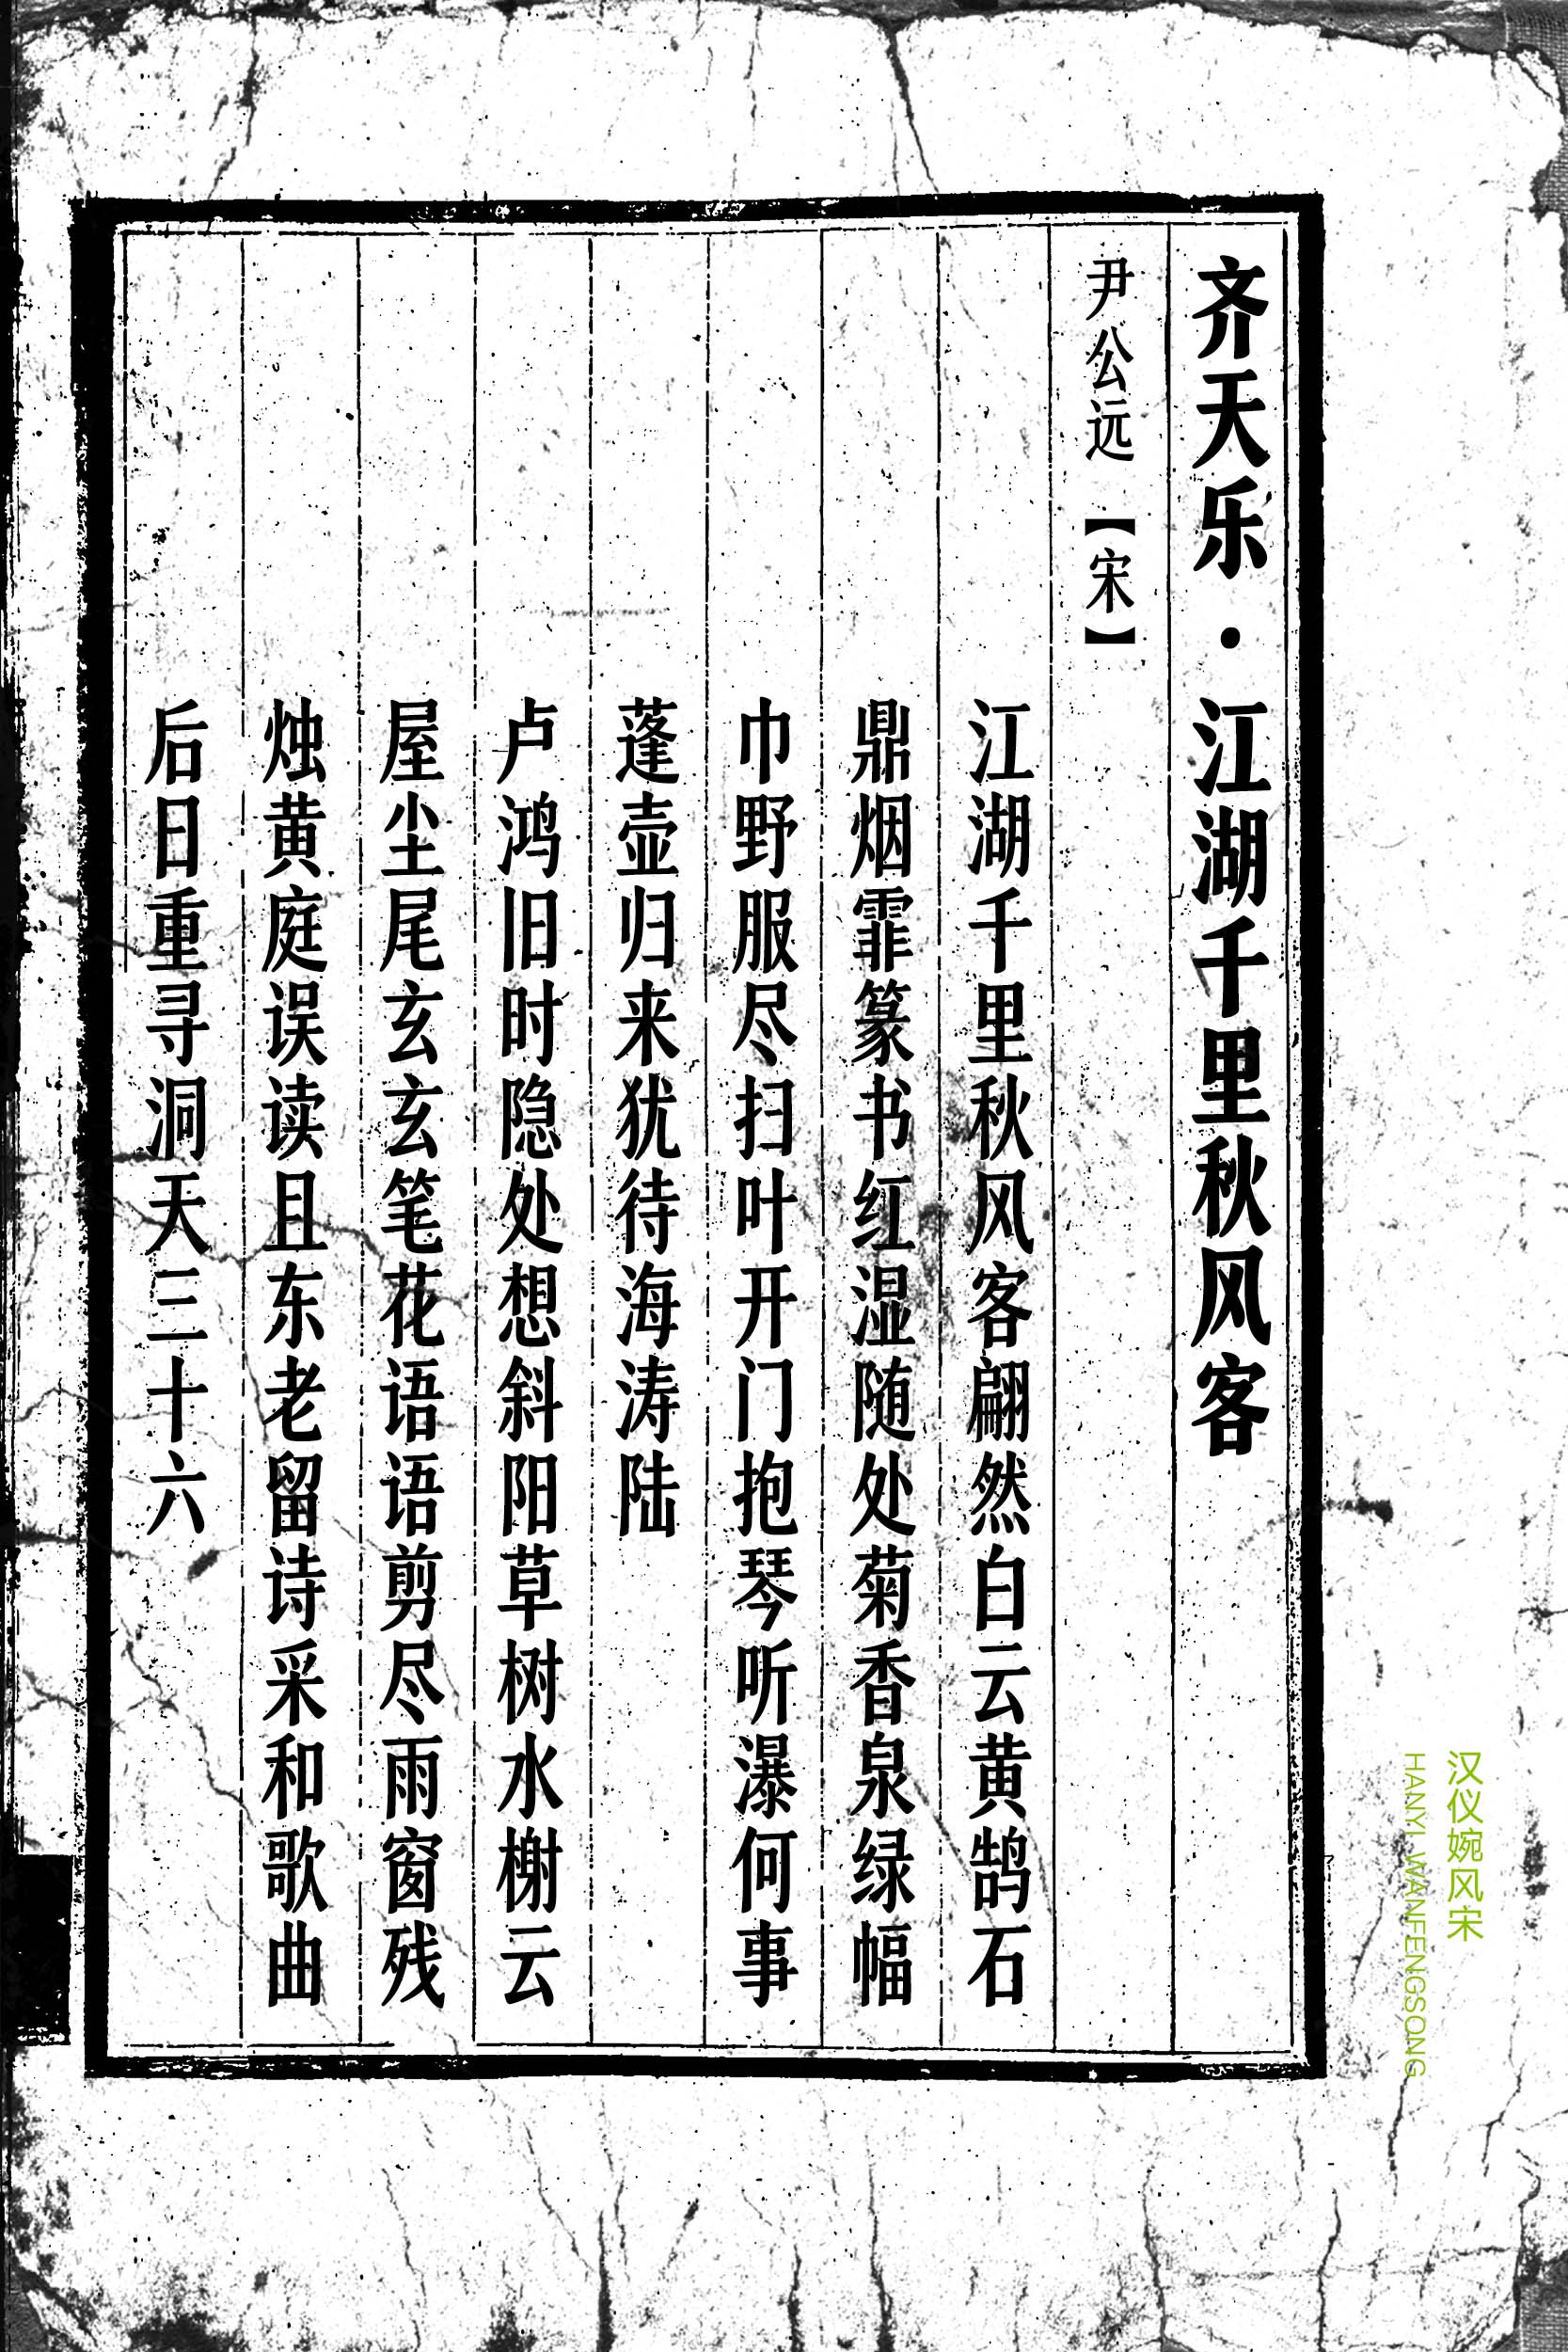 齐天乐·江湖千里秋风客
尹公远【宋】
江湖千里秋风客翩然白云黄鹄石
鼎烟霏篆书红湿随处菊香泉绿幅
巾野服尽扫叶开门抱琴听瀑何事
蓬壶归来犹待海涛陆
卢鸿旧时隐处想斜阳草树水榭云
屋尘尾玄玄笔花语语剪尽雨窗残
烛黄庭误读且东老留诗采和歌曲
后日重寻洞天三十六
汉仪婉风宋
HANYI WANFENGSONG